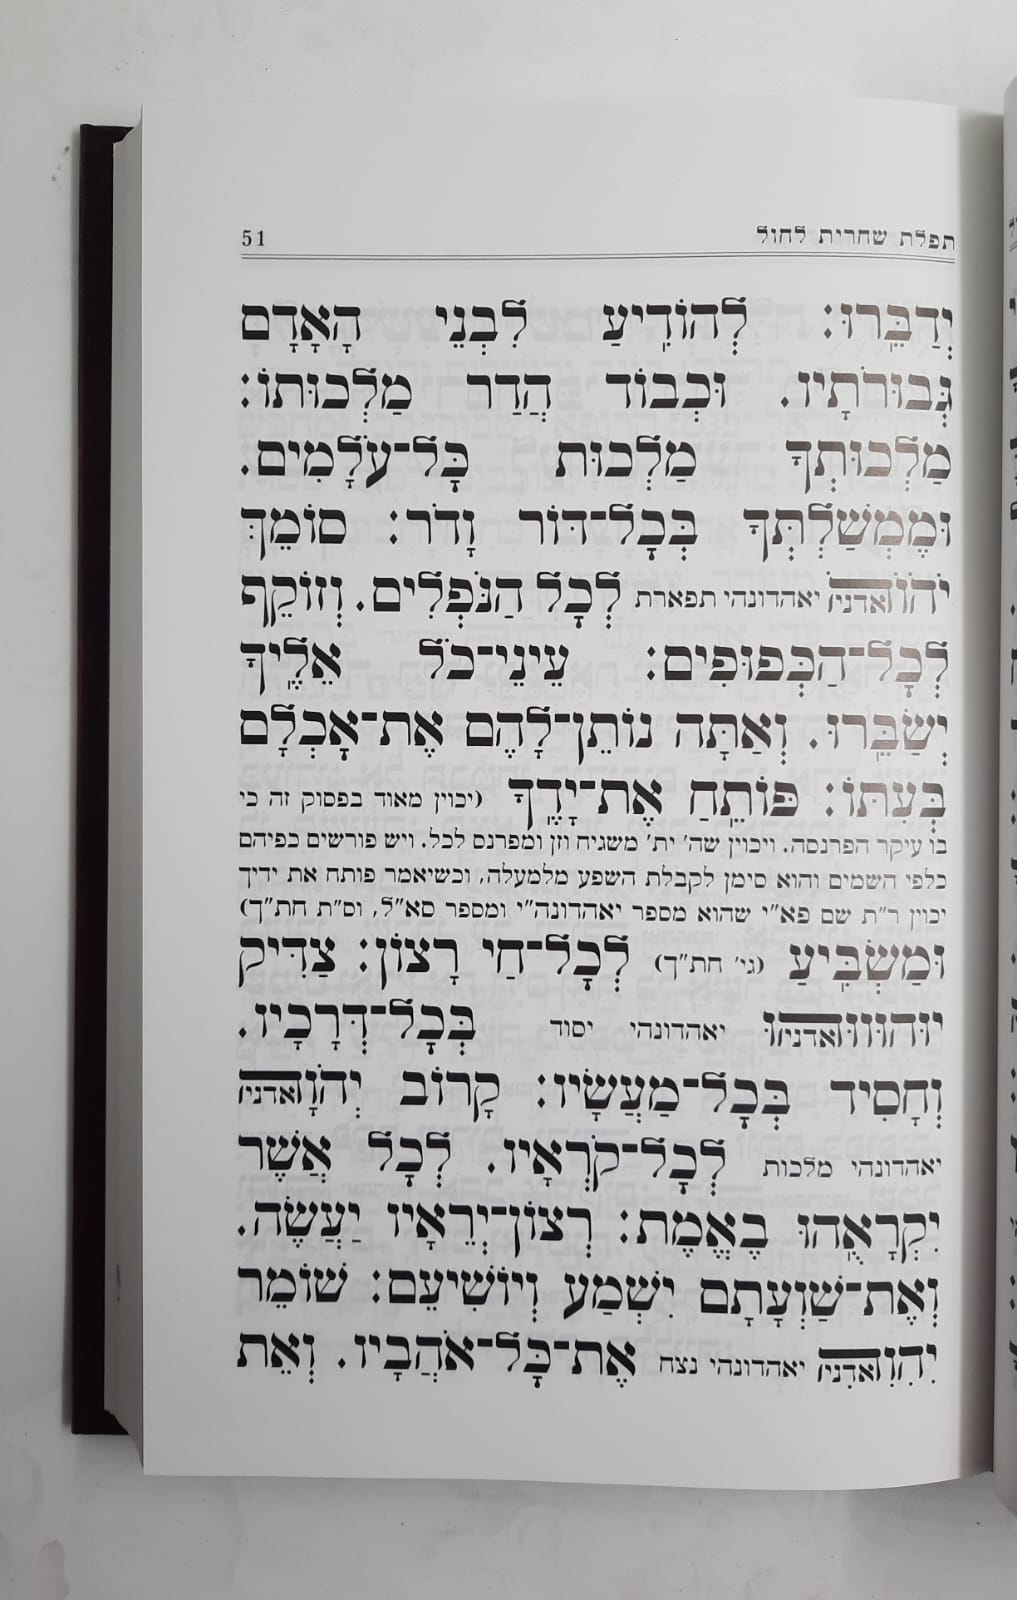 תפלת שחרית לחול 51
יְדַבֵּרוּ: לְהוֹדִיעַ לִבְנֵי הָאָדָם
גְּבוּרֹתָיו. וּכְבוֹד הֲדַר מַלְכוּתוֹ:
מַלְכוּתְךָ מַלְכוּת כָּל־עֹלָמִים.
וּמֶמְשַׁלְתְּךָ בְּכָל־דּוֹר וָדֹר: סוֹמֵךְ
יֹהֹוֹהֹ אדני יאהדונהי תפארת לְכָל הַנֹּפְלִים. וְזוֹקֵף
לְכָל־הַכְּפוּפִים: עֵינֵי־כֹל אֵלֶיךָ
יְשַׂבֵּרוּ. וְאַתָּה נוֹתֵן־לָהֶם אֶת־אָכְלָם
בְּעִתּוֹ: פּוֹתֵחַ אֶת־יָדֶךָ (יכוין מאוד בפסוק זה כי
בו עיקר הפרנסה. ויכוין שה' ית' משגיח וזן ומפרנס לכל. ויש פורשים כפיהם
כלפי השמים והוא סימן לקבלת השפע מלמעלה, וכשיאמר פותח את ידיך
יכוין ר"ת שם פא"י שהוא מספר יאהדונה"י ומספר סא"ל, וס"ת חת"ך)
וּמַשְׂבִּיעַ (גי' חת"ך) לְכָל־חַי רָצוֹן: צַדִּיק
יוּהוּווּהוּ אדני יאהדונהי יסוד בְּכָל־דְּרָכָיו.
וְחָסִיד בְּכָל־מַעֲשָׂיו: קָרוֹב יְהֹוָה אדני
יאהדונהי מלכות לְכָל־קֹרְאָיו. לְכָל אֲשֶׁר
יִקְרָאֻהוּ בֶאֱמֶת: רְצוֹן־יְרֵאָיו יַעֲשֶׂה.
וְאֶת־שַׁוְעָתָם יִשְׁמַע וְיוֹשִׁיעֵם: שׁוֹמֵר
יִהִוִהִ אדני יאהדונהי נצח אֶת־כָּל־אֹהֲבָיו. וְאֵת